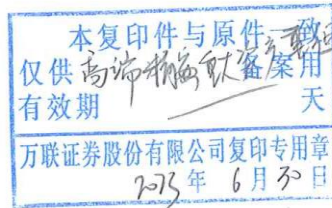 本复印件与原件一致
仅供高端精酿备案用
有效期 天
万联证券股份有限公司复印专用章
2023年6月30日